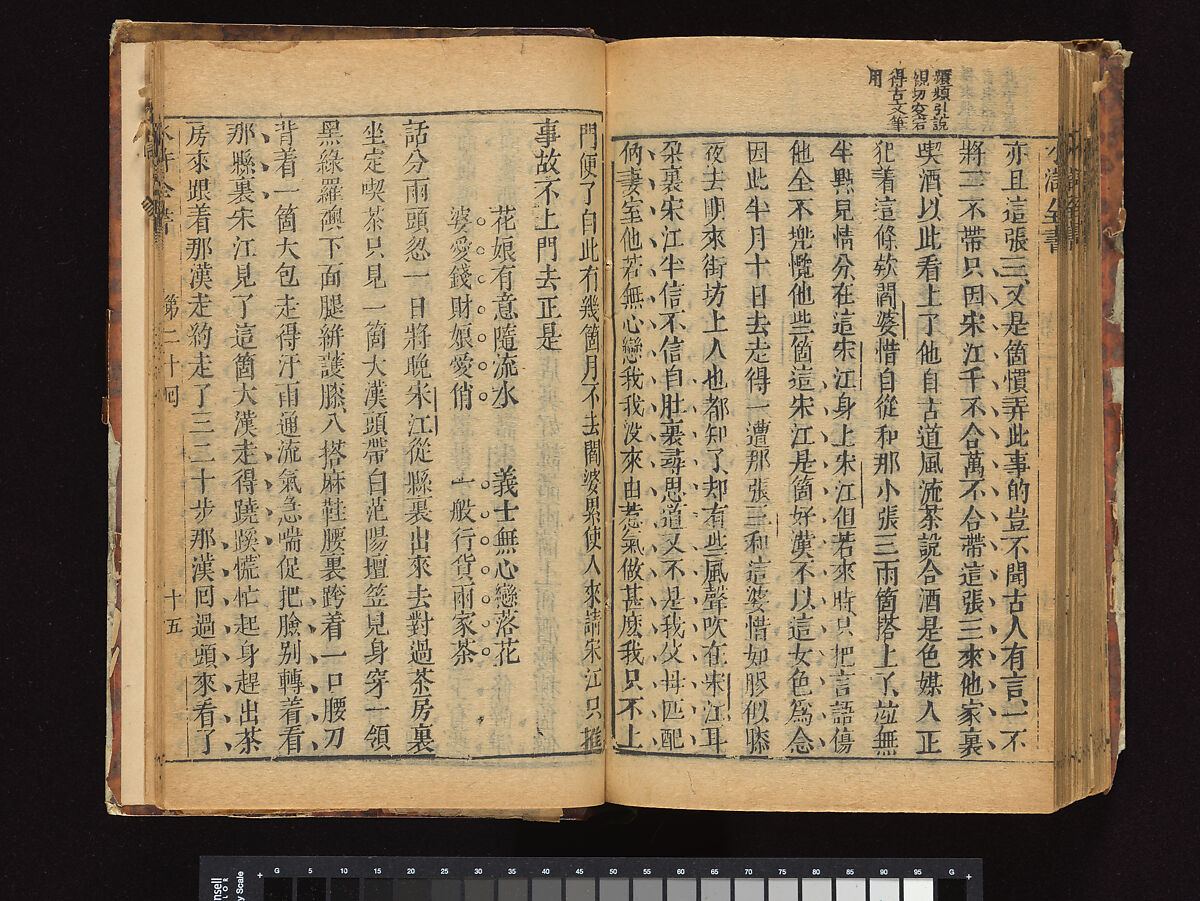 水滸全書
頻頻引說
親切宛若
得古文筆
用
亦且這張三又是箇慣弄此事的豈不聞古人有言一不
將二不帶只因宋江千不合萬不合帶這張三來他家裏
喫酒以此看上了他自古道風流茶說合酒是色媒人正
犯着這條欵閻婆惜自從和那小張三兩箇搭上了並無
半點見情分在這宋江身上宋江但若來時只把言語傷
他全不兠攬他些箇這宋江是箇好漢不以這女色爲念
因此半月十日去走得一遭那張三和這婆惜如膠似漆
夜去明來街坊上人也都知了却有些風聲吹在宋江耳
朶裏宋江半信不信自肚裏尋思道又不是我父母匹配
俩妻室他若無心戀我我没來由惹氣做甚麼我只不上
門便了自此有幾箇月不去閻婆累使人來請宋江只推
事故不上門去正是
花娘有意隨流水 義士無心戀落花
婆愛錢財娘愛俏 一般行貨兩家茶
話分兩頭忽一日將晚宋江從縣裏出來去對過茶房裏
坐定喫茶只見一箇大漢頭帶白范陽氊笠兒身穿一領
黑綠羅襖下面腿絣護膝八搭麻鞋腰裏跨着一口腰刀
背着一箇大包走得汗雨通流氣急喘促把臉别轉着看
那縣裏宋江見了這箇大漢走得蹺蹊慌忙起身趕出茶
房來跟着那漢走約走了三二十步那漢囘過頭來看了
第二十囘
十五
G 5 10 15 20 25 30 35 40 45 50 55 60 65 70 75 80 85 90 95 G